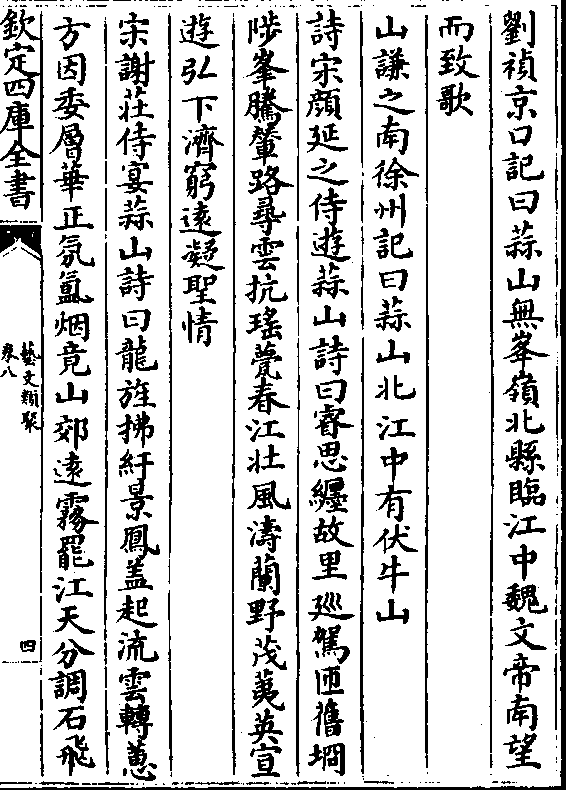 劉禎京口記曰蒜山無峯嶺北縣臨江中魏文帝南望
而致歌
山謙之南徐州記曰蒜山北江中有伏牛山
詩宋顔延之侍遊蒜山詩曰睿思纒故里廵駕匝舊坰
陟峯騰輦路尋雲抗瑤甍春江壯風濤蘭野茂荑英宣
遊弘下濟窮遠凝聖情
宋謝莊侍宴蒜山詩曰龍旌拂紆景鳳盖起流雲轉蔥
方因委層華正氛氳烟竟山郊逺霧罷江天分調石飛
欽定四庫全書
藝文類聚
卷八
四